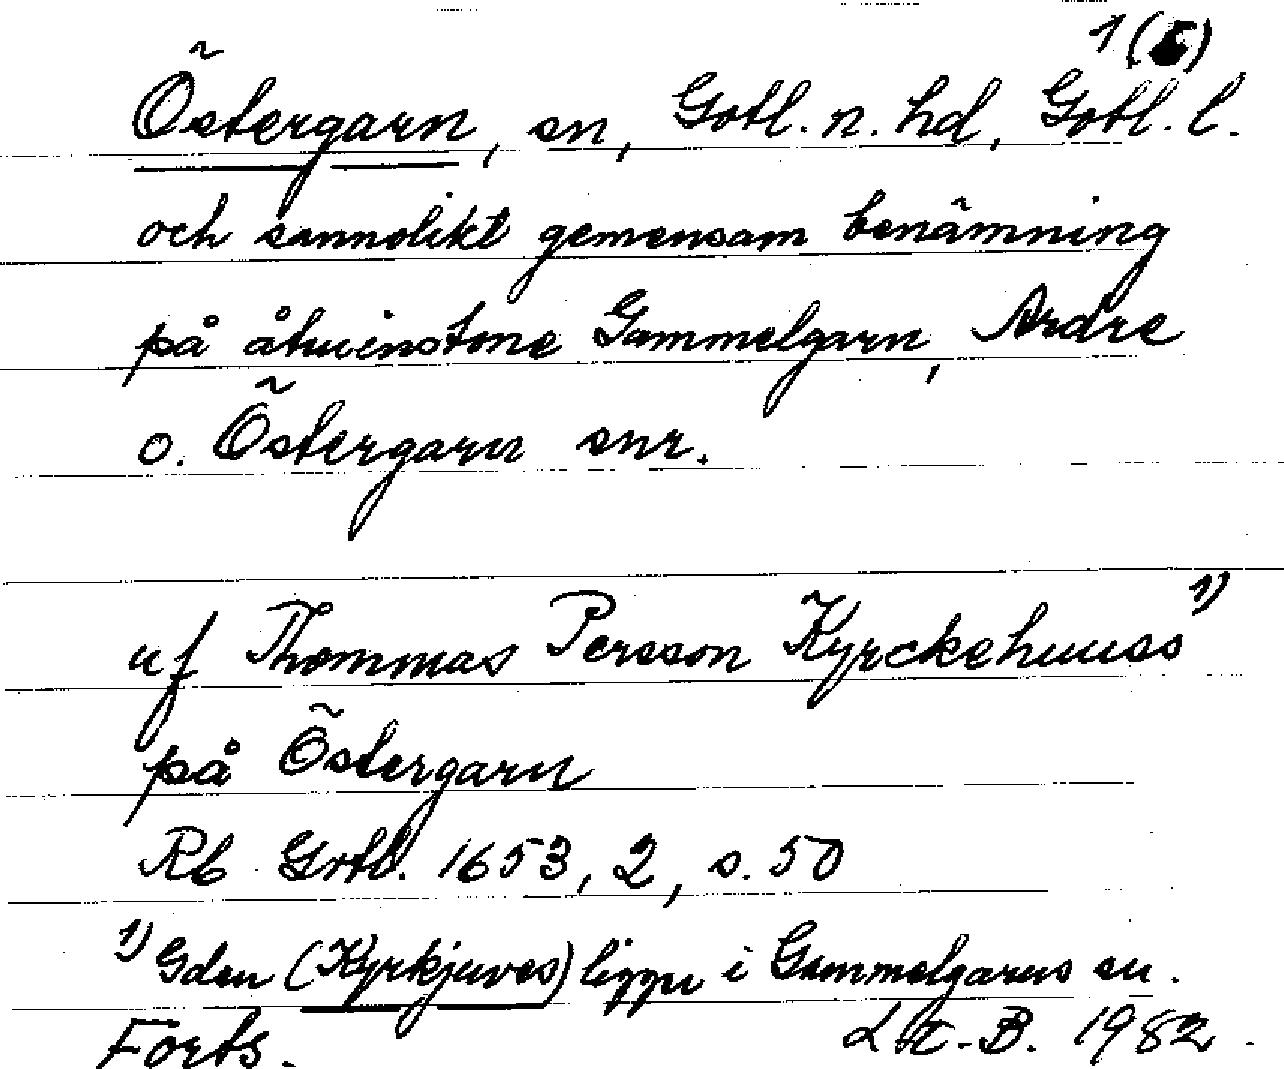 1(5)
Östergarn, sn, Gotl. n. hd, Gotl. l.
och sannolikt gemensam benämning
på åtminstone Gammelgarn, Ardre
o. Östergarn snr.
uf Thommas Persson Kyrckehuuss 1)
på Östergarn
Rb Gotl. 1653, 2, s. 50
1) Gden (Kyrkjuves) ligger i Gammelgarns sn.
Forts. B. 1982.